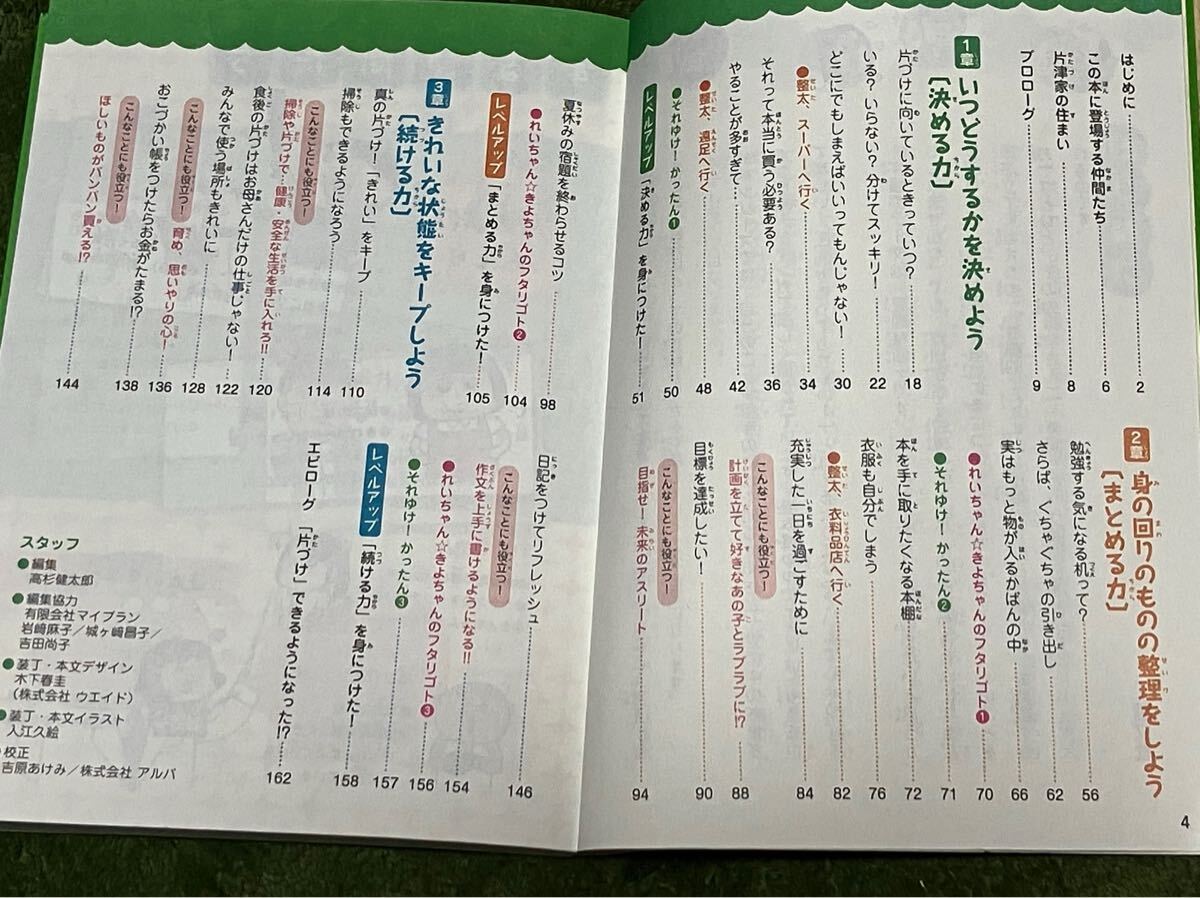 はじめに 2
この本に登場する仲間たち 6
片津家の住まい 8
プロローグ 9
1章 いつどうするかを決めよう
[決める力]
片づけに向いているときっていつ? 18
いる? いらない? 分けてスッキリ! 22
どこにでもしまえばいいってもんじゃない! 30
●整太、スーパーへ行く 34
それって本当に買う必要ある? 36
やることが多すぎて… 42
●整太、遠足へ行く 48
●それゆけ! かったん❶ 50
レベルアップ 「決める力」を身につけた! 51
2章 身の回りのものの整理をしよう
[まとめる力]
勉強する気になる机って? 56
さらば、ぐちゃぐちゃの引き出し 62
実はもっと物が入るかばんの中 66
●れいちゃん☆きよちゃんのフタリゴト❶ 70
●それゆけ! かったん❷ 71
本を手に取りたくなる本棚 72
衣服も自分でしまう 76
●整太、衣料品店へ行く 82
充実した一日を過ごすために 84
こんなことにも役立つ!
計画を立てて好きなあの子とラブラブに!? 88
目標を達成したい! 90
こんなことにも役立つ!
目指せ! 未来のアスリート 94
4
夏休みの宿題を終わらせるコツ 98
●れいちゃん☆きよちゃんのフタリゴト❷ 104
レベルアップ 「まとめる力」を身につけた! 105
3章 きれいな状態をキープしよう
[続ける力]
真の片づけ! 「きれい」をキープ 110
掃除もできるようになろう 114
こんなことにも役立つ!
掃除や片づけで…健康・安全な生活を手に入れろ!! 120
食後の片づけはお母さんだけの仕事じゃない! 122
みんなで使う場所もきれいに 128
こんなことにも役立つ! 育め、思いやりの心! 136
おこづかい帳をつけたらお金がたまる!? 138
こんなことにも役立つ!
ほしいものがバンバン買える!? 144
日記をつけてリフレッシュ 146
こんなことにも役立つ!
作文を上手に書けるようになる!! 154
●れいちゃん☆きよちゃんのフタリゴト❸ 156
●それゆけ! かったん❸ 157
レベルアップ 「続ける力」を身につけた! 158
エピローグ 「片づけ」できるようになった!? 162
スタッフ
●編集
高杉健太郎
●編集協力
有限会社マイプラン
岩﨑麻子/城ヶ﨑昌子/
吉田尚子
●装丁・本文デザイン
木下春圭
(株式会社 ウエイド)
●装丁・本文イラスト
入江久絵
校正
吉原あけみ/株式会社 アルバ